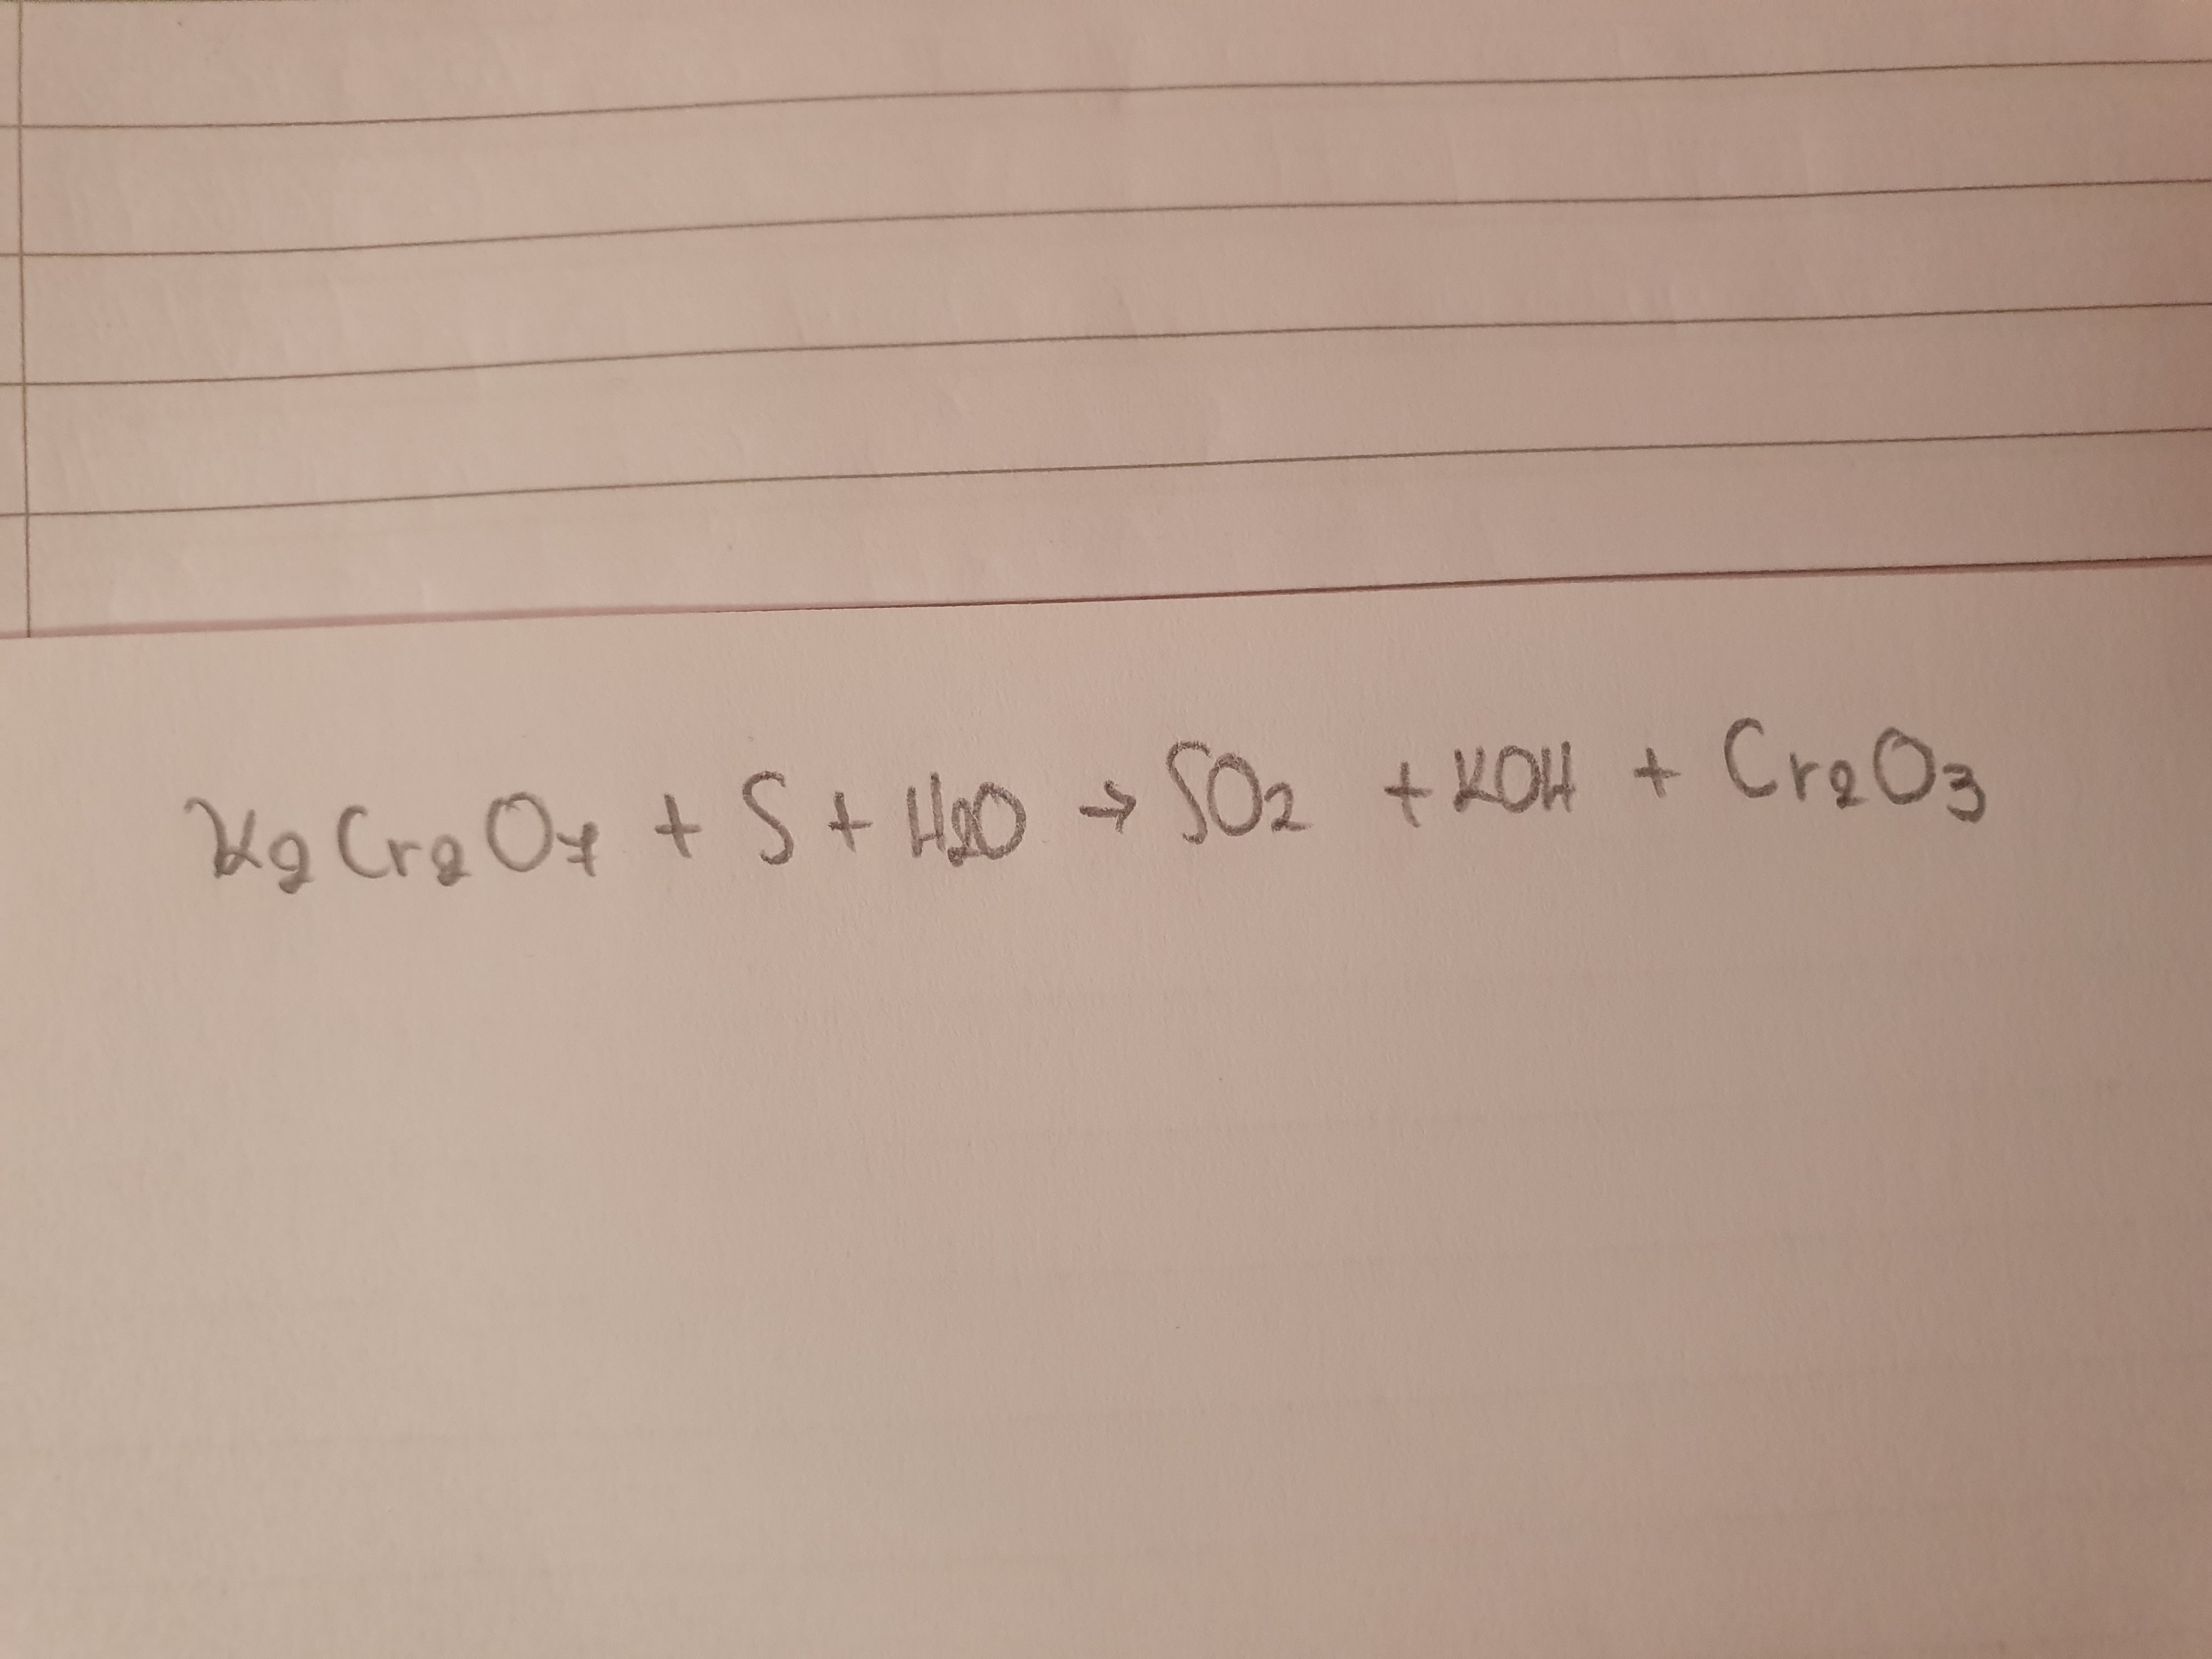 K₂Cr₂O₇ + S + H₂O → SO₂ + KOH + Cr₂O₃